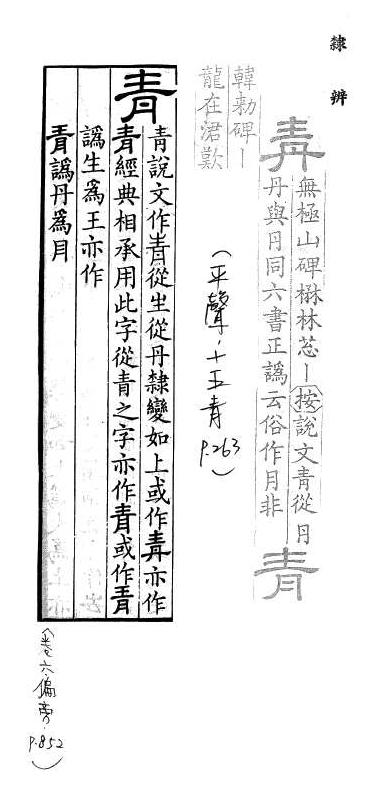 隸辨
青
無極山碑楙林芯丨按說文青從丹
丹與丹同六書正譌云俗作月非
青
韓勑碑丨
龍在涒歎
(平聲.十五青 p.263)
青
青說文作靑從生從丹隸變如上或作青亦作
青經典相承用此字從青之字亦作青或作青
譌生爲王亦作
青譌丹爲月
(卷六偏旁. p.852)